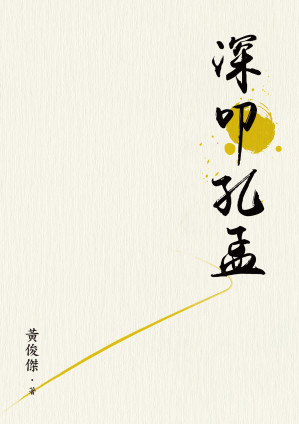 深叩孔孟
黃俊傑・著